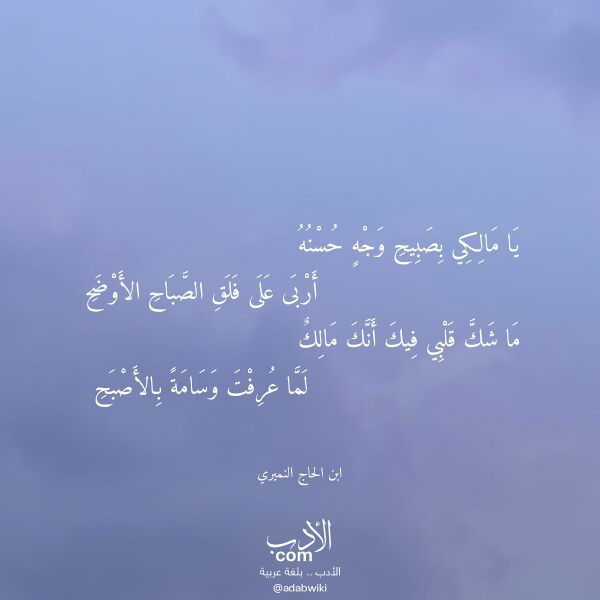 يَا مَالِكِي بِصَبِيحِ وَجْهٍ حُسْنُهُ
أَرْبَى عَلَى فَلَقِ الصَّبَاحِ الأَوْضَحِ
مَا شَكَّ قَلْبِي فِيكَ أَنَّكَ مَالِكٌ
لَمَّا عُرِفْتَ وَسَامَةً بِالأَصْبَحِ
ابن الحاج النميري
الأدب
com
الأدب .. بلغة عربية
@adabwiki